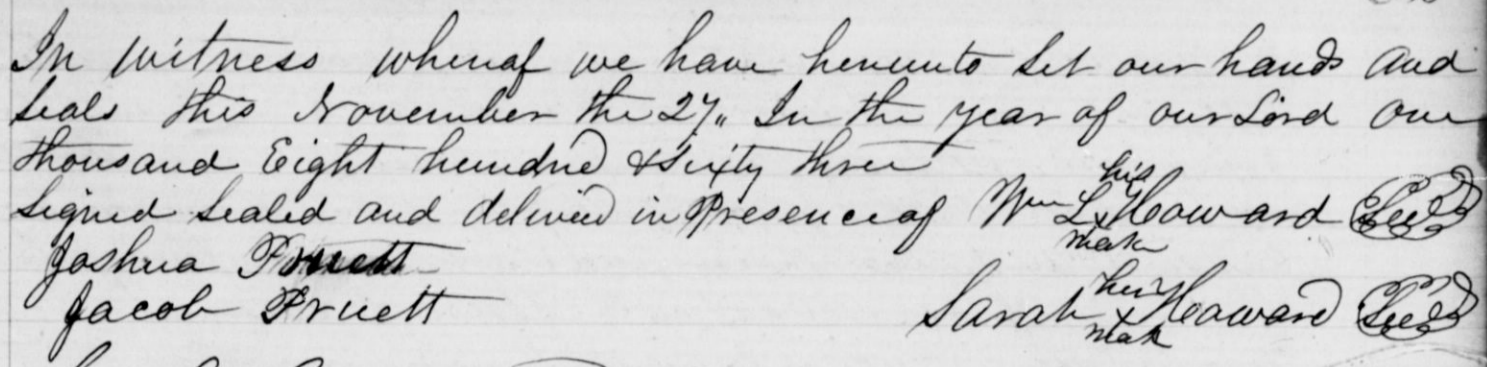 In Witness whereof we have hereunto Set our hands And
Seals this November the 27,, In the year of our Lord One
thousand Eight hundred & Sixty three
Signed Sealed and delivered in Presence of Wm L his x mark Howard Seal
Joshua Pruett
Jacob Pruett
Sarah her x mark Howard Seal